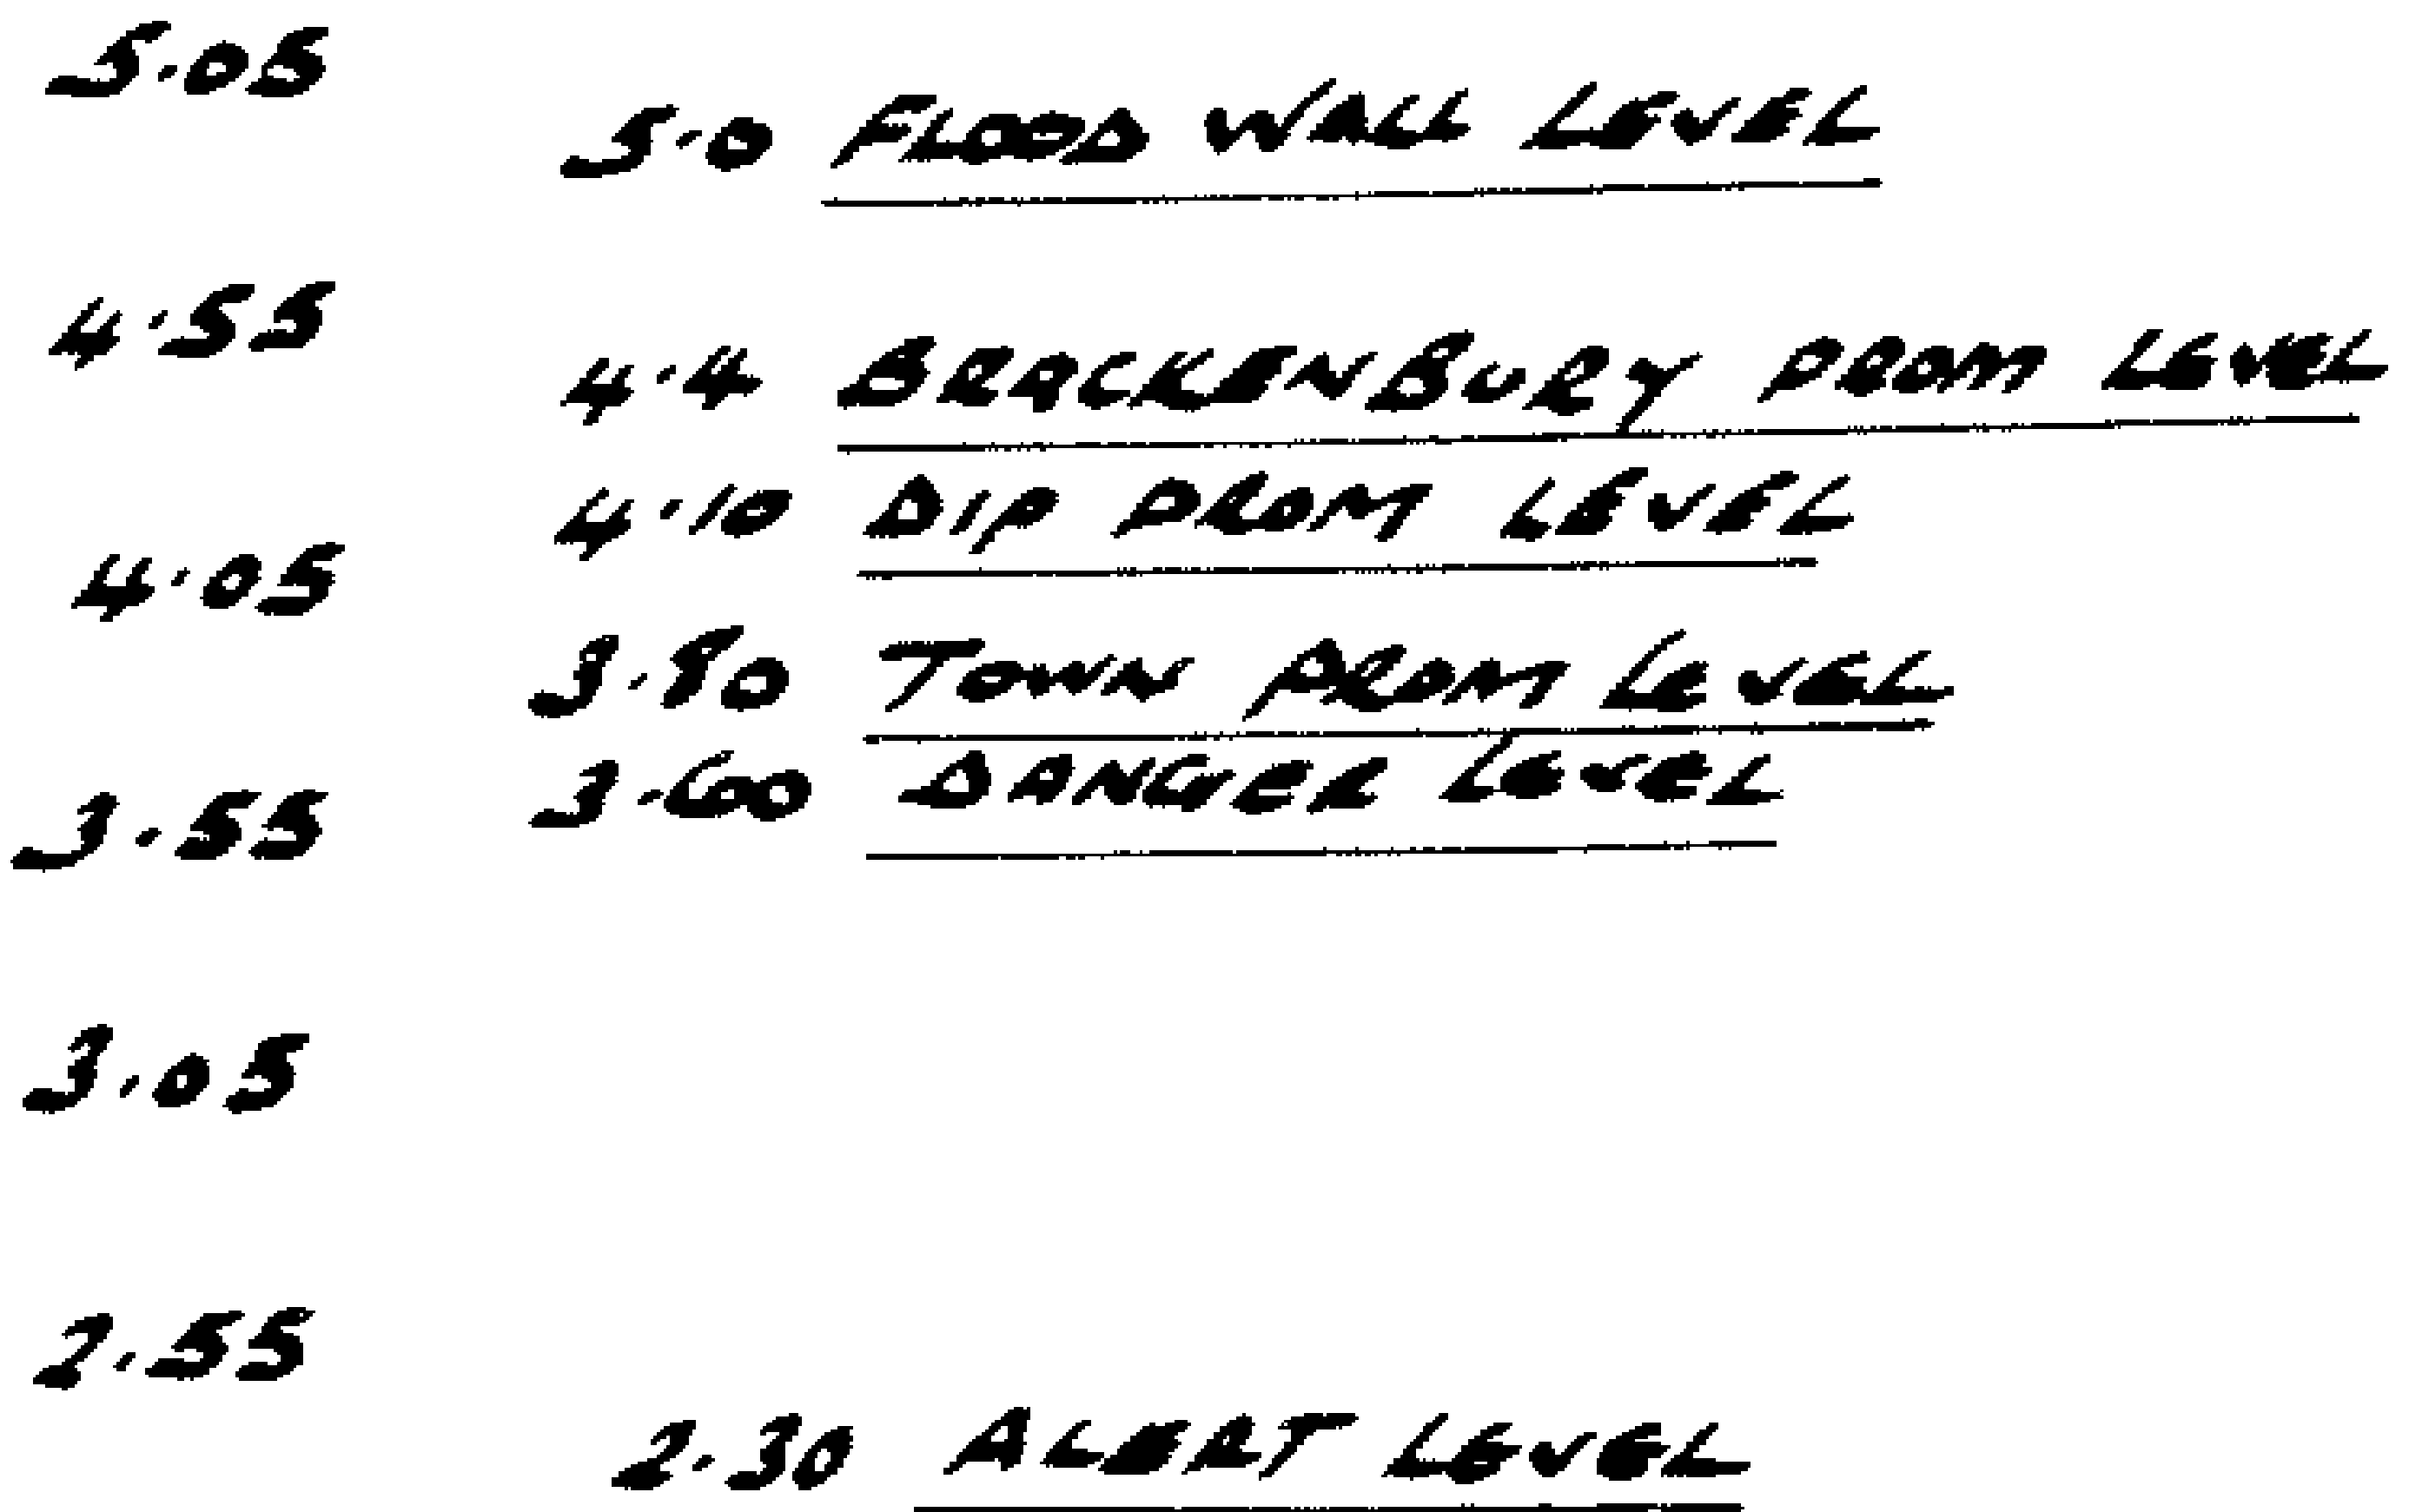 5.05
5.0 FLOOD WALL LEVEL
4.55
4.4 BRACKENBURY PROM LEVEL
4.10 DIP PROM LEVEL
4.05
3.80 TOWN PROM LEVEL
3.60 DANGER LEVEL
3.55
3.05
2.55
2.30 ALERT LEVEL